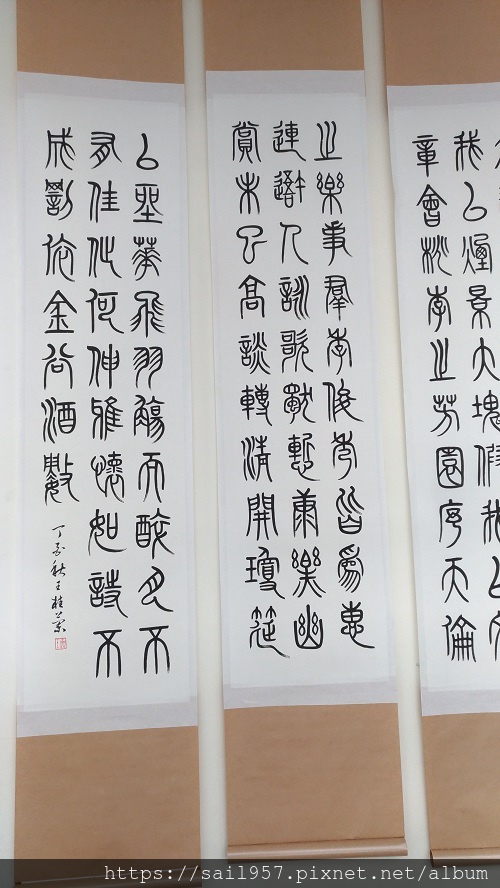 我以煙景大塊假我以文
章會桃李之芳園序天倫
之樂事群季俊秀皆為惠
連吾人詠歌獨慚康樂幽
賞未已高談轉清開瓊筵
以坐華飛羽觴而醉月不
有佳作何伸雅懷如詩不
成罰依金谷酒數
丁亥秋王桂蘭
https://sail957.pixnet.net/album